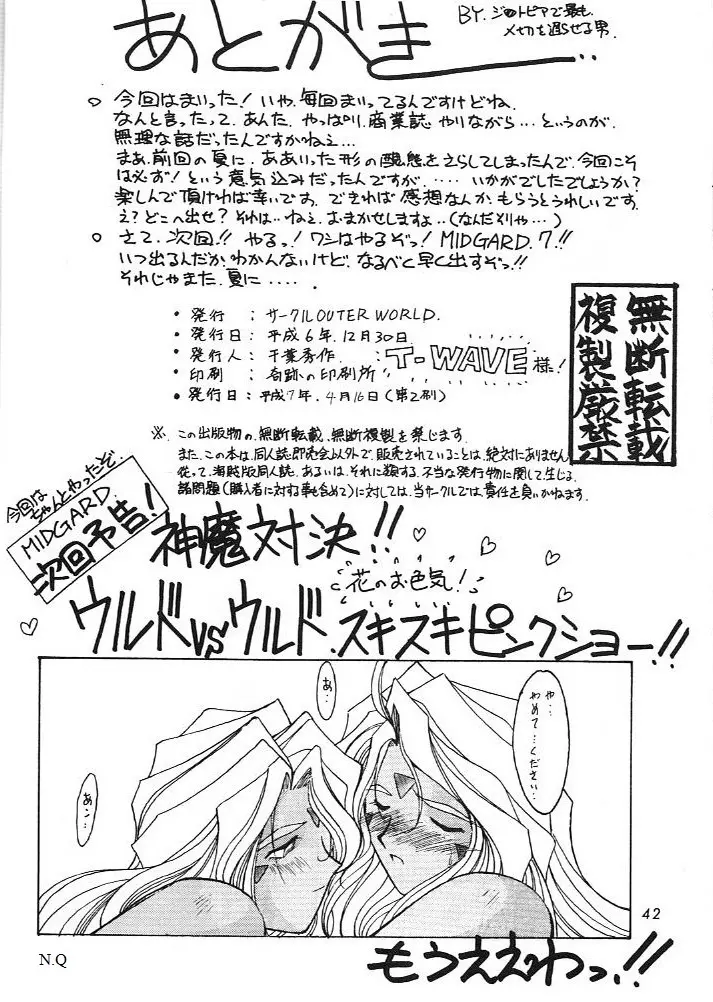 あとがき
BY.ジオトピアで最も
〆切を遅らせる男.
○ 今回はまいった!いや、毎回まいってるんですけどね.
なんと言ったって、あんた、やっぱり、商業誌やりながら…というのが、
無理な話だったんですかねえ…
まあ、前回の夏に、ああいった形の醜態をさらしてしまったんで、今回こそ
は必ず!という意気込みだったんですが、……いかがでしたでしょうか?
楽しんで頂ければ幸いです。できれば感想なんか、もらうとうれしいです。
え?どこへ出せ?それは‥ねえ、おまかせしますよ‥(なんだそりゃ…)
○ さて、次回!!やるっ!ワシはやるぞっ!MIDGARD.7!!
いつ出るんだか、わかんないけど、なるべく早く出すぞっ!!
それじゃまた、夏に‥‥.
・発行 : サークルOUTER WORLD.
・発行日: 平成6年.12月30日.
・発行人: 千葉秀作. :
・印刷 : 奇跡の印刷所 T-WAVE様!
・発行日: 平成7年.4月16日(第2刷)
無断転載
複製厳禁
※. この出版物の、無断転載、無断複製を禁じます.
また、この本は、同人誌即売会以外で、販売されていることは、絶対にありません
従って、海賊版同人誌、あるいは、それに類する、不当な発行物に関して生じる、
諸問題(購入者に対する事も含めて)に対しては、当サークルでは、責任を負いかねます.
今回は
ちゃんとやったぞ.
MIDGARD
次回予告!
神魔対決!!
花のお色気!
ウルドvsウルド.スキスキピンクショー!!
や…
やめて…ください…
あ…
あン…
42
もうええわっ.!!
N.Q